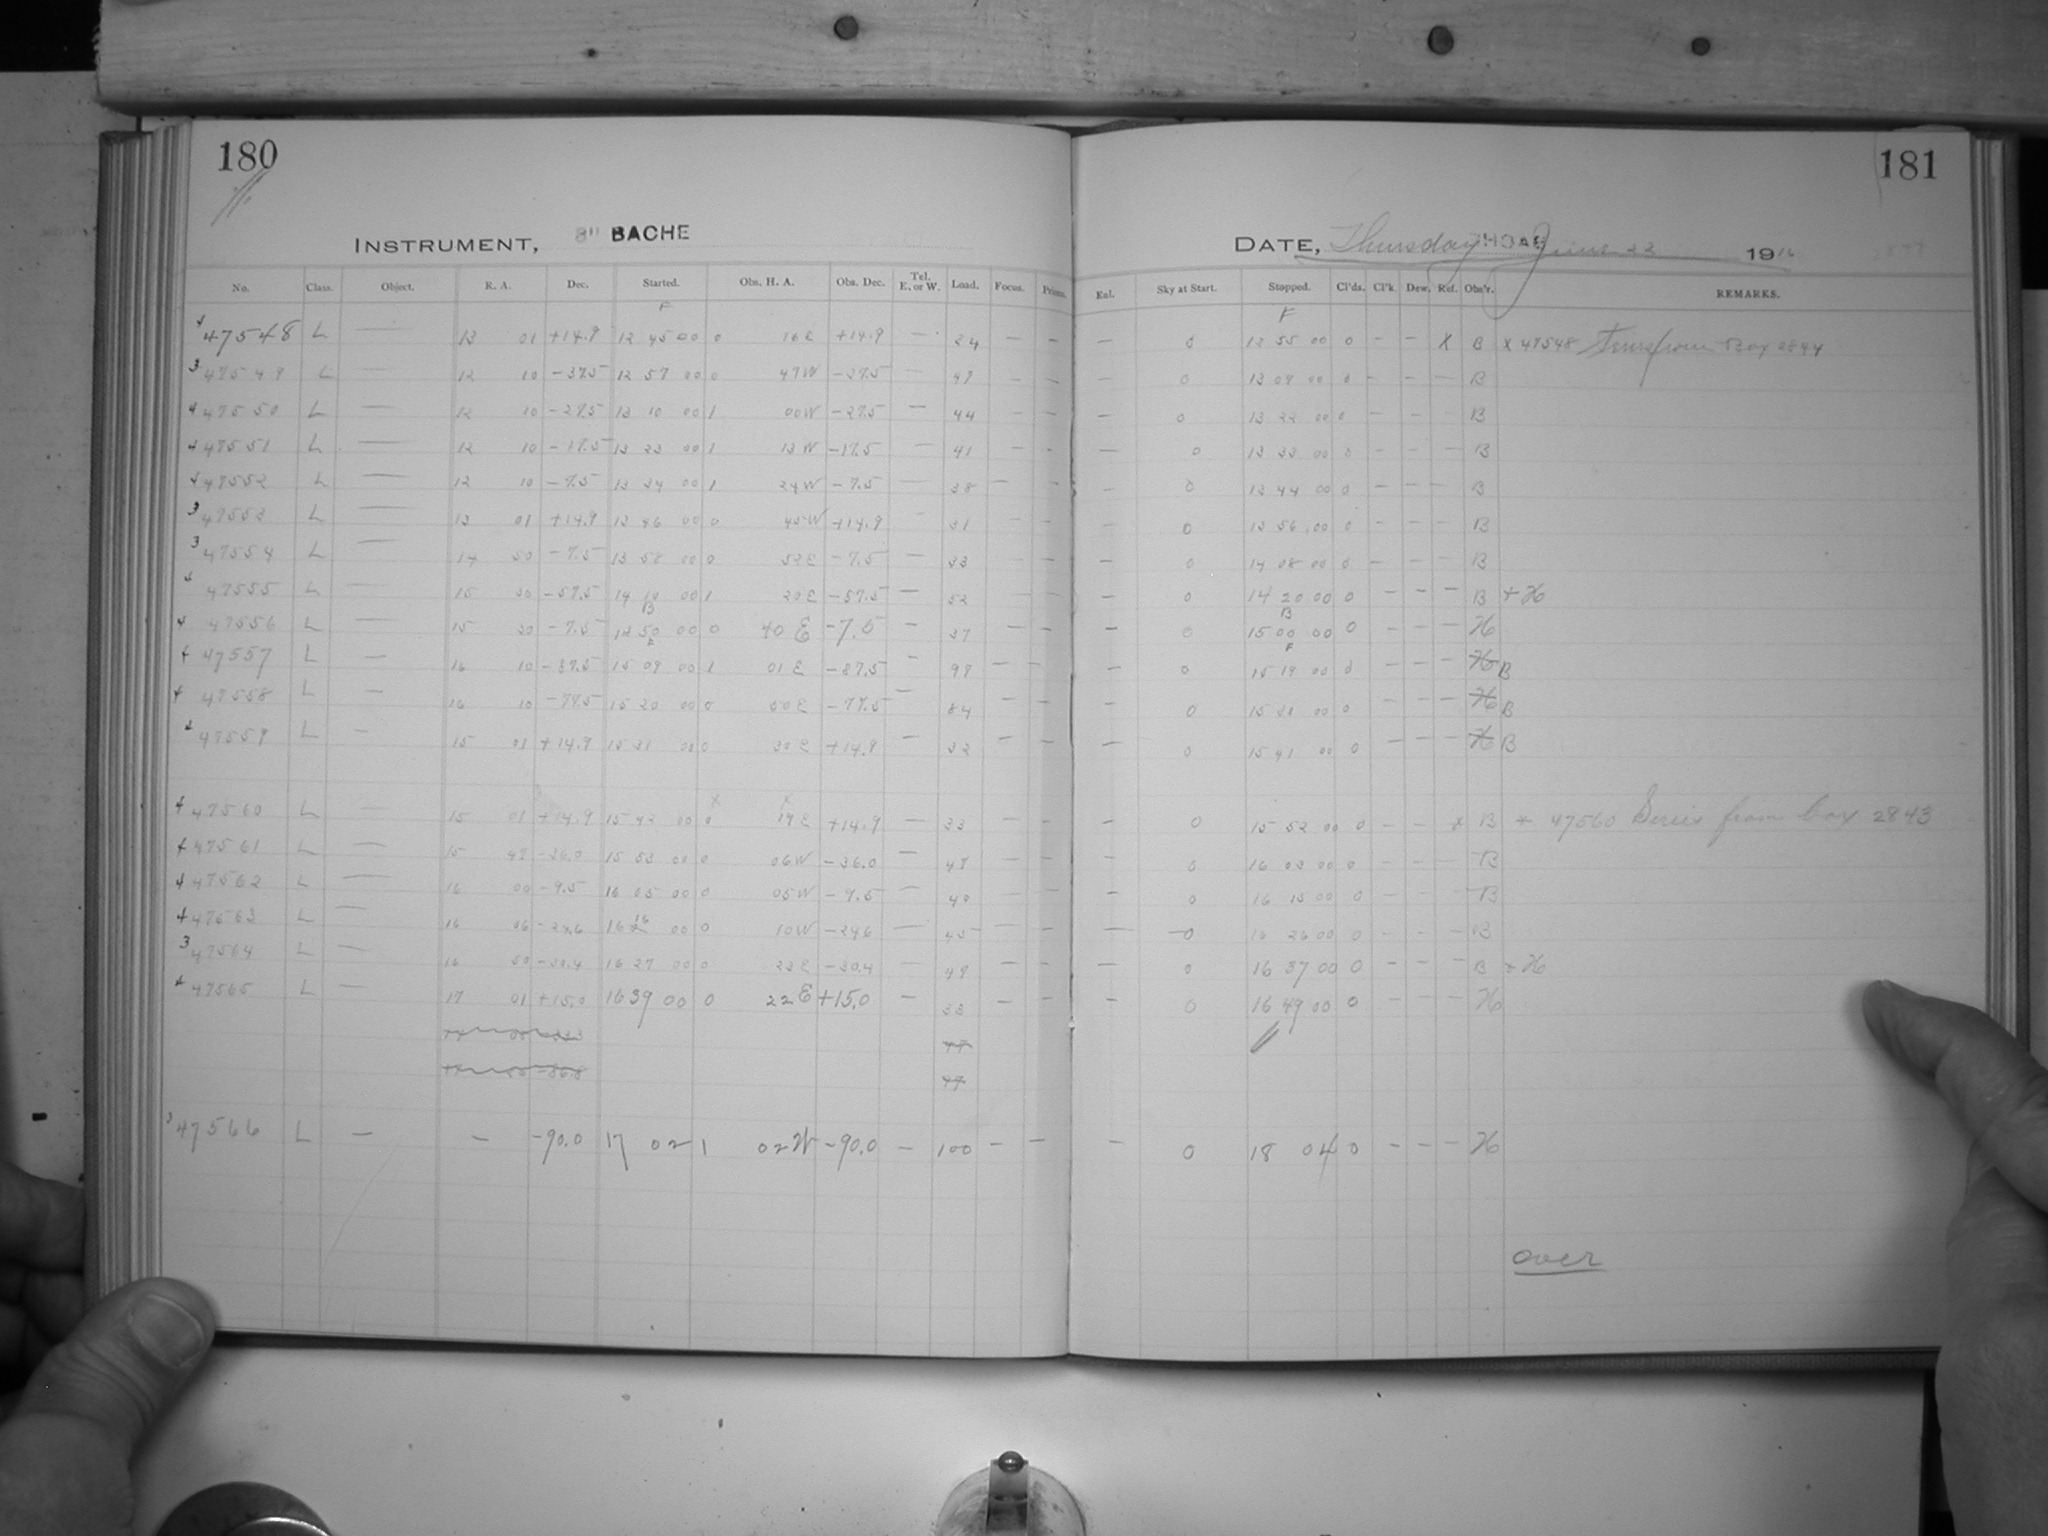 180
INSTRUMENT, 8" BACHE
No. Class. Object. R. A. Dec. Started. Obs. H. A. Obs. Dec. Tel. E. or W. Load. Focus. Prisms.
F
4 47548 L — 13 01 +14.9 12 45 00 0 16 E +14.9 — 34 — —
3 47549 L — 12 10 -37.5 12 57 00 0 47 W -37.5 47 — —
4 47550 L — 12 10 -27.5 13 10 00 1 00 W -27.5 — 44 — —
4 47551 L — 12 10 -17.5 13 23 00 1 13 W -17.5 — 41 — -
4 47552 L — 12 10 -7.5 13 34 00 1 24 W -7.5 38 — -
3 47553 L — 13 01 +14.9 13 46 00 0 45 W +14.9 — 31 — -
3 47554 L — 14 50 -7.5 13 58 00 0 52 E -7.5 — 33 — —
4 47555 L — 15 30 -57.5 14 10 00 1 20 E -57.5 — 52 — —
B
4 47556 L — 15 30 -7.5 12 50 00 0 40 E -7.5 — 37 — —
F
4 47557 L — 16 10 -87.5 15 09 00 1 01 E -87.5 — 97 — —
4 47558 L — 16 10 -77.5 15 20 00 0 50 E -77.5 — 84 — —
2 47559 L — 15 01 +14.9 15 31 00 0 30 E +14.9 — 32 — —
x x
4 47560 L — 15 01 +14.9 15 42 00 0 19 E +14.9 — 33 — —
4 47561 L — 15 47 -36.0 15 53 00 0 06 W -36.0 — 47 — —
4 47562 L — 16 00 -9.5 16 05 00 0 05 W -9.5 — 40 — —
4 47563 L — 16 06 -24.6 16 16 00 0 10 W -24.6 — 45 — -
3 47564 L — 16 50 -30.4 16 27 00 0 23 E -30.4 — 47 — —
4 47565 L — 17 01 +15.0 16 39 00 0 22 E +15.0 — 33 — —
47
47
3 47566 L — — -90.0 17 02 1 02 W -90.0 — 100 — —
181
DATE, Thursday June 22 1916
HOAR
Enl. Sky at Start. Stopped. Cl'ds. Cl'k. Dew. Ref. Obs'r. REMARKS.
F
— 0 12 55 00 0 — — X B X 47548 from Box 2844
— 0 13 07 00 0 - - — B
— 0 13 22 00 0 - - — B
— 0 13 33 00 0 - - - B
— 0 13 44 00 0 — — — B
— 0 13 56 00 0 - - — B
— 0 14 08 00 0 — — — B
— 0 14 20 00 0 — — — B + H
B
0 15 00 00 0 — — — H
F
— 0 15 19 00 0 — — — H B
— 0 15 30 00 0 — — — H B
— 0 15 41 00 0 — — — H B
— 0 15 52 00 0 — — x B x 47560 Series from box 2843
— 0 16 03 00 0 - - — B
— 0 16 15 00 0 - - — B
— 0 16 26 00 0 - - - B
— 0 16 37 00 0 — — — B + H
— 0 16 49 00 0 — — — H
— 0 18 04 0 — — — H
over